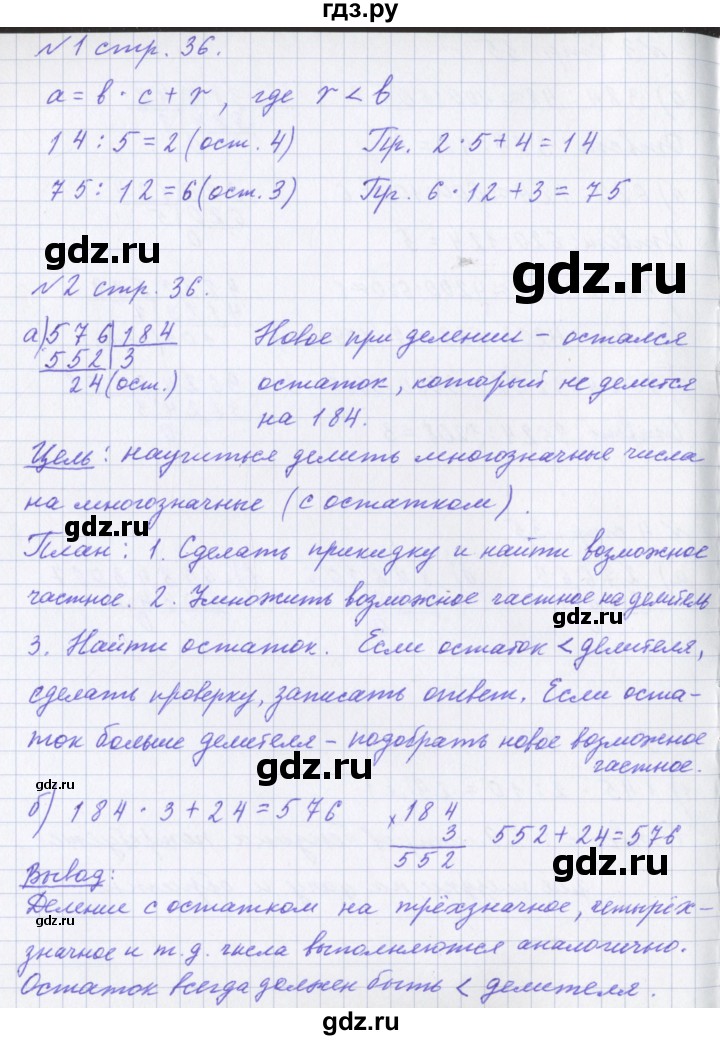 гдз.ру
№1 стр. 36.
a = b · c + r, где r < b
14 : 5 = 2 (ост. 4) Пр. 2 · 5 + 4 = 14
75 : 12 = 6 (ост. 3) Пр. 6 · 12 + 3 = 75
gdz.ru
gdz.ru
№2 стр. 36.
а) 576 | 184 Новое при делении – остался
552 | 3 остаток, который не делится
24 (ост.) на 184.
gdz.ru
Цель: научиться делить многозначные числа
на многозначные (с остатком).
gdz.ru
План: 1. Сделать прикидку и найти возможное
частное. 2. Умножить возможное частное на делитель
gdz.ru
3. Найти остаток. Если остаток < делителя,
сделать проверку, записать ответ. Если оста-
ток больше делителя – подобрать новое возможное
частное.
gdz.ru
gdz.ru
б) 184 · 3 + 24 = 576 × 184
3 552 + 24 = 576
552
gdz.ru
Вывод:
Деление с остатком на трёхзначное, четырёх-
значное и т.д. числа выполняются аналогично.
gdz.ru
Остаток всегда должен быть < делителя.
gdz.ru
gdz.ru